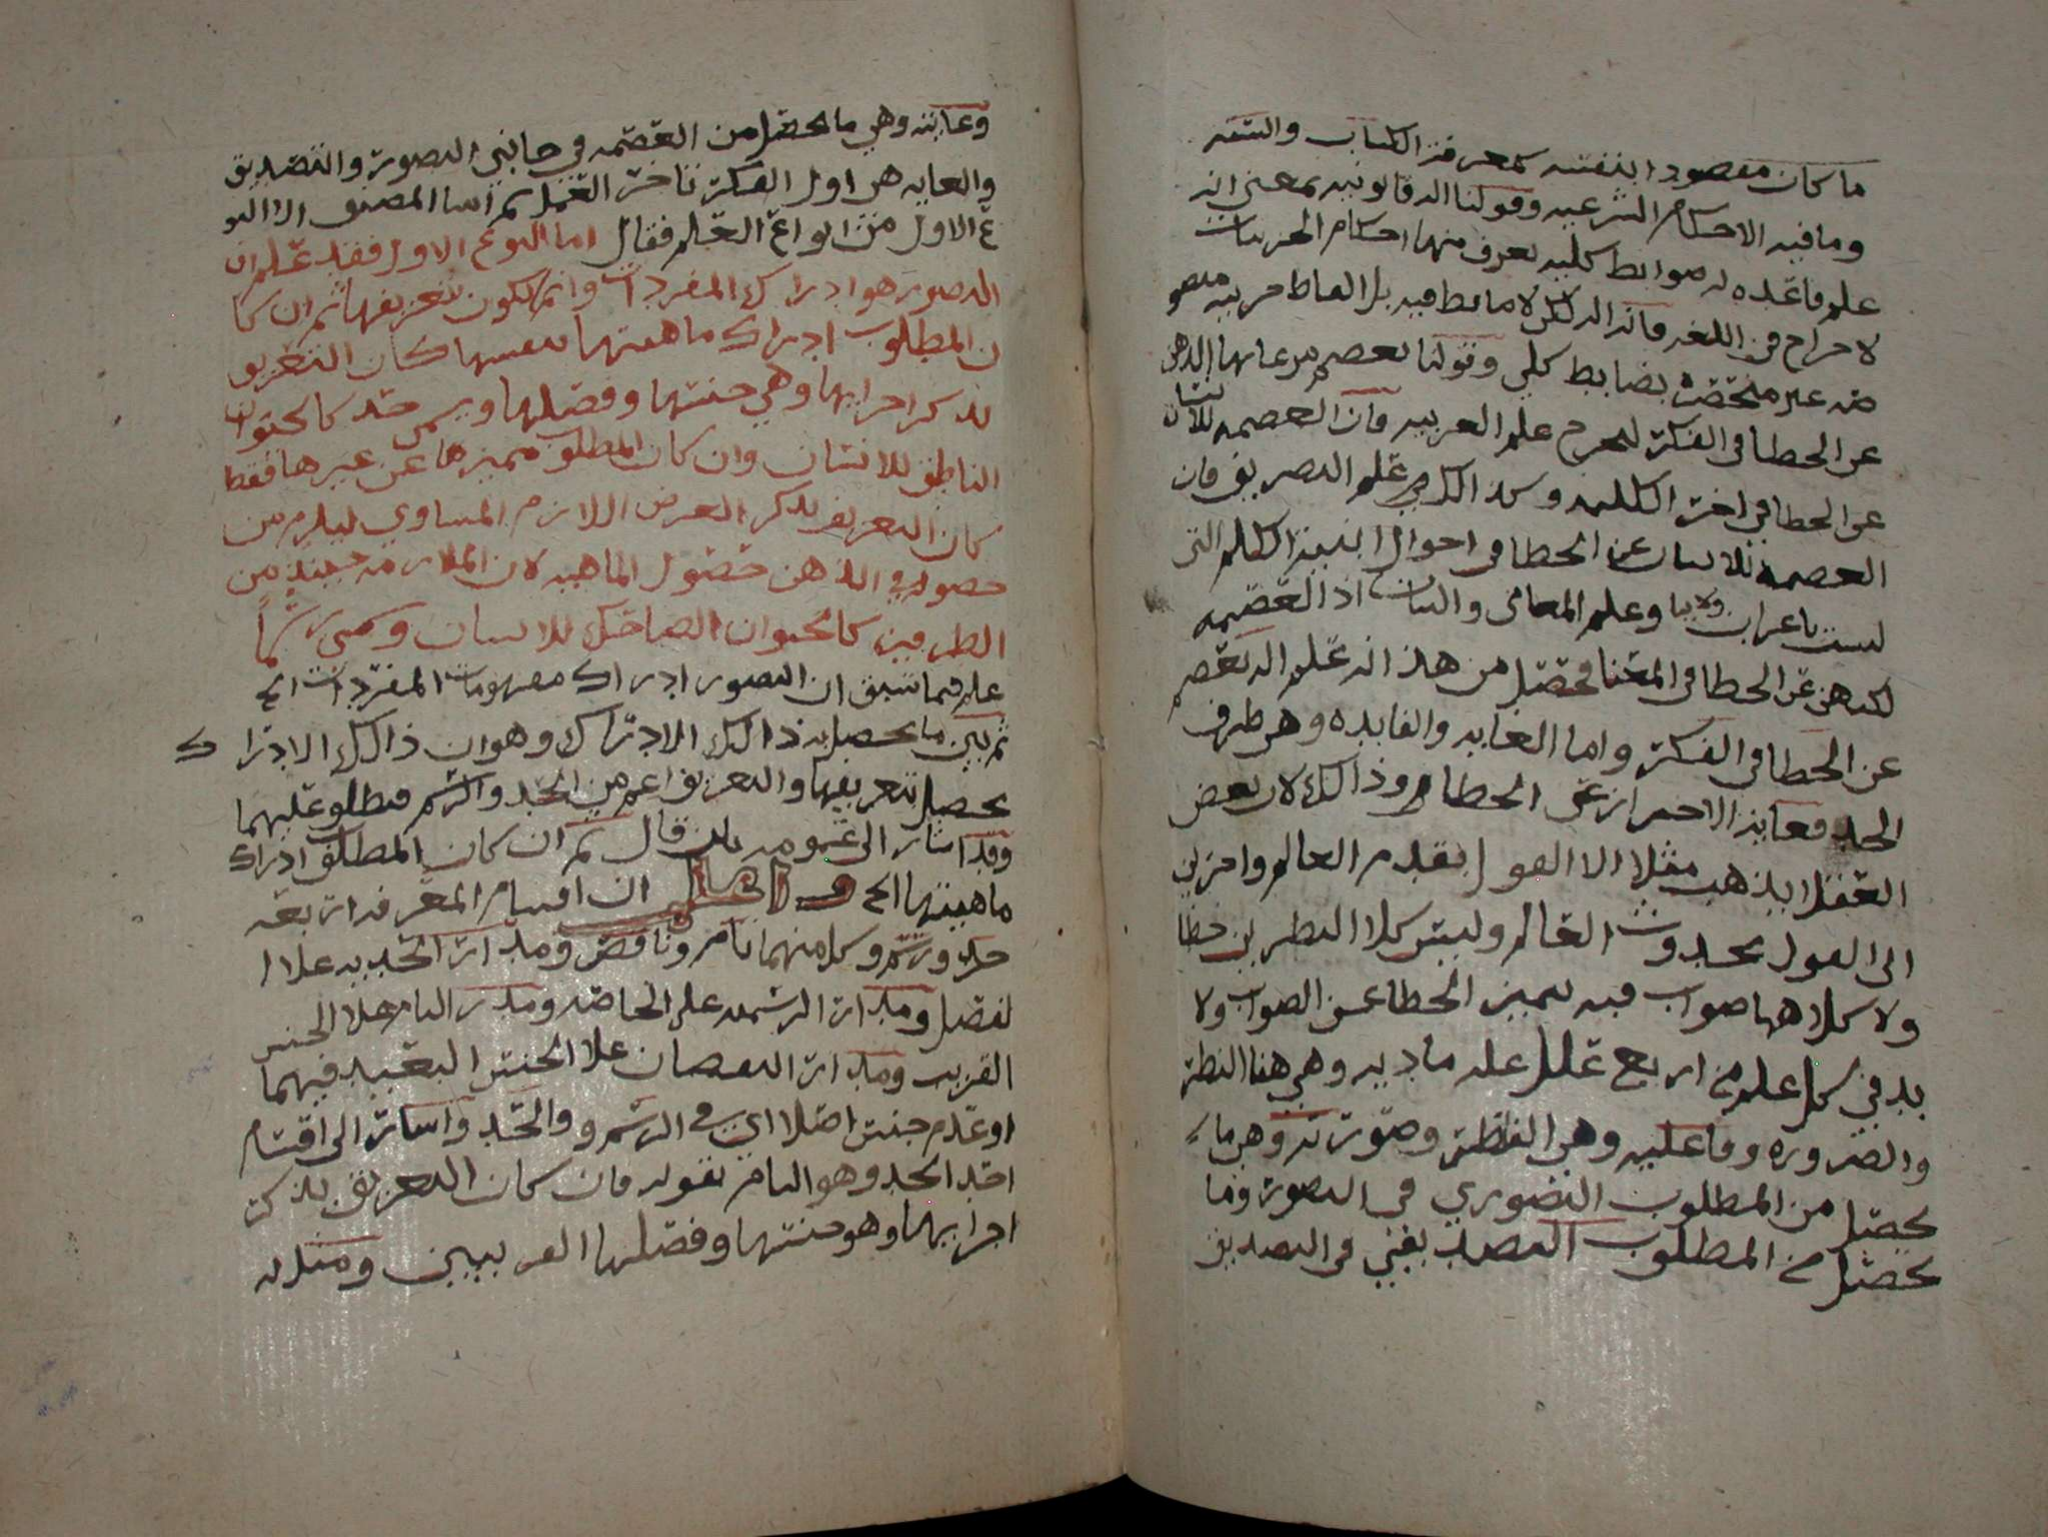 ما كان مقصودا بنفسه كمعرفة الكتاب والسنه
وما فيه الاحكام الشرعيه وقولنا اله قانونيه بمعنى انه
علم قاعده له ضوابط كليه يعرف منها احكام الجزييات
لاخراج فن اللغه فانه اله لكن لا ضابط فيه بل الفاظ جزييه
غير منحصره بضابط كلي وقولنا تعصم مراعاتها الذهن
عن الخطا في الفكرة ليخرج علم العربيه فان العصمه للسان
عن الخطا في اخر الكلمه وكذا لك علم التصريف فان
العصمه للسان عن الخطا في احوال ابنية الكلم التي
ليست باعراب ولا بنا وعلم المعاني والبيان اذ العصمه
لكنه هي عن الخطا في المعنا فحصل من هذا انه علم اله تعصم
عن الخطا في الفكرة واما الغايه والفايده وهي طرف
الحد فغايته الاحتراز عن الخطا وذالك لان بعض
العقلا يذهب مثلا الا القول بقدم العالم واخرين
الى القول بحدوث العالم وليس كلا النظرين خطا
ولا كلاهما صواب فبه يميز الخطا عن الصواب ولا
بد في كل علم من اربع علل عله ماديه وهي هنا النظر
والضروره وفاعليه وهي الفطره وصورته وهي ما
يحصل من المطلوب التصوري في التصور وما
يحصل من المطلوب التصديقي في التصديق
وغايته وهي ما يحصل من العصمه في جانبي التصور والتصديق
والغايه هي اول الفكرة تاخرة العمل ثم اشا المصنف الا النو
ع الاول من انواع العلم فقال اما النوع الاول فقد علم ان
التصور هو ادراك المفردات وانه يكون بتعريفها ثم ان كا
ن المطلوب ادراك ماهيتها نفسها كان التعريف
بذكر اجزايها وهي جنسها وفصلها ويسمى حد كالحيوان
الناطق للانسان وان كان المطلوب تمييزها عن غيرها فقط
كان التعريف بذكر العرض اللازم المساوي ليلزم من
حصوله في الذهن حصول الماهيه لان الملازمه حينيذ من
الطرفين كالحيوان الضاحك للانسان ويسمى رسما
علم فيما سبق ان التصور ادراك مفهومات المفردات الخ
ثم بين ما يحصل به ذالك الادراك وهو ان ذالك الادراك
يحصل بتعريفها والتعريف اعم من الحد والرسم فيطلق عليهما
وقد اشار الى عمومه بان قال ثم ان كان المطلوب ادراك
ماهيتها الخ ان اقسام المعرفه اربعه
حد ورسم وكل منهما تام وناقص ومدار الحديه علا ا
لفصل ومدار الرسميه على الخاصه ومدار التام علا الجنس
القريب ومدار النقصان علا الجنس البعيد فيهما
او عدم جنس اصلا اي في الرسم والحد واشار الى اقسام
احد الحد وهو التام بقوله فان كان التعريف بذكر
اجزايها وهو جنسها وفصلها القريبين ومثل له